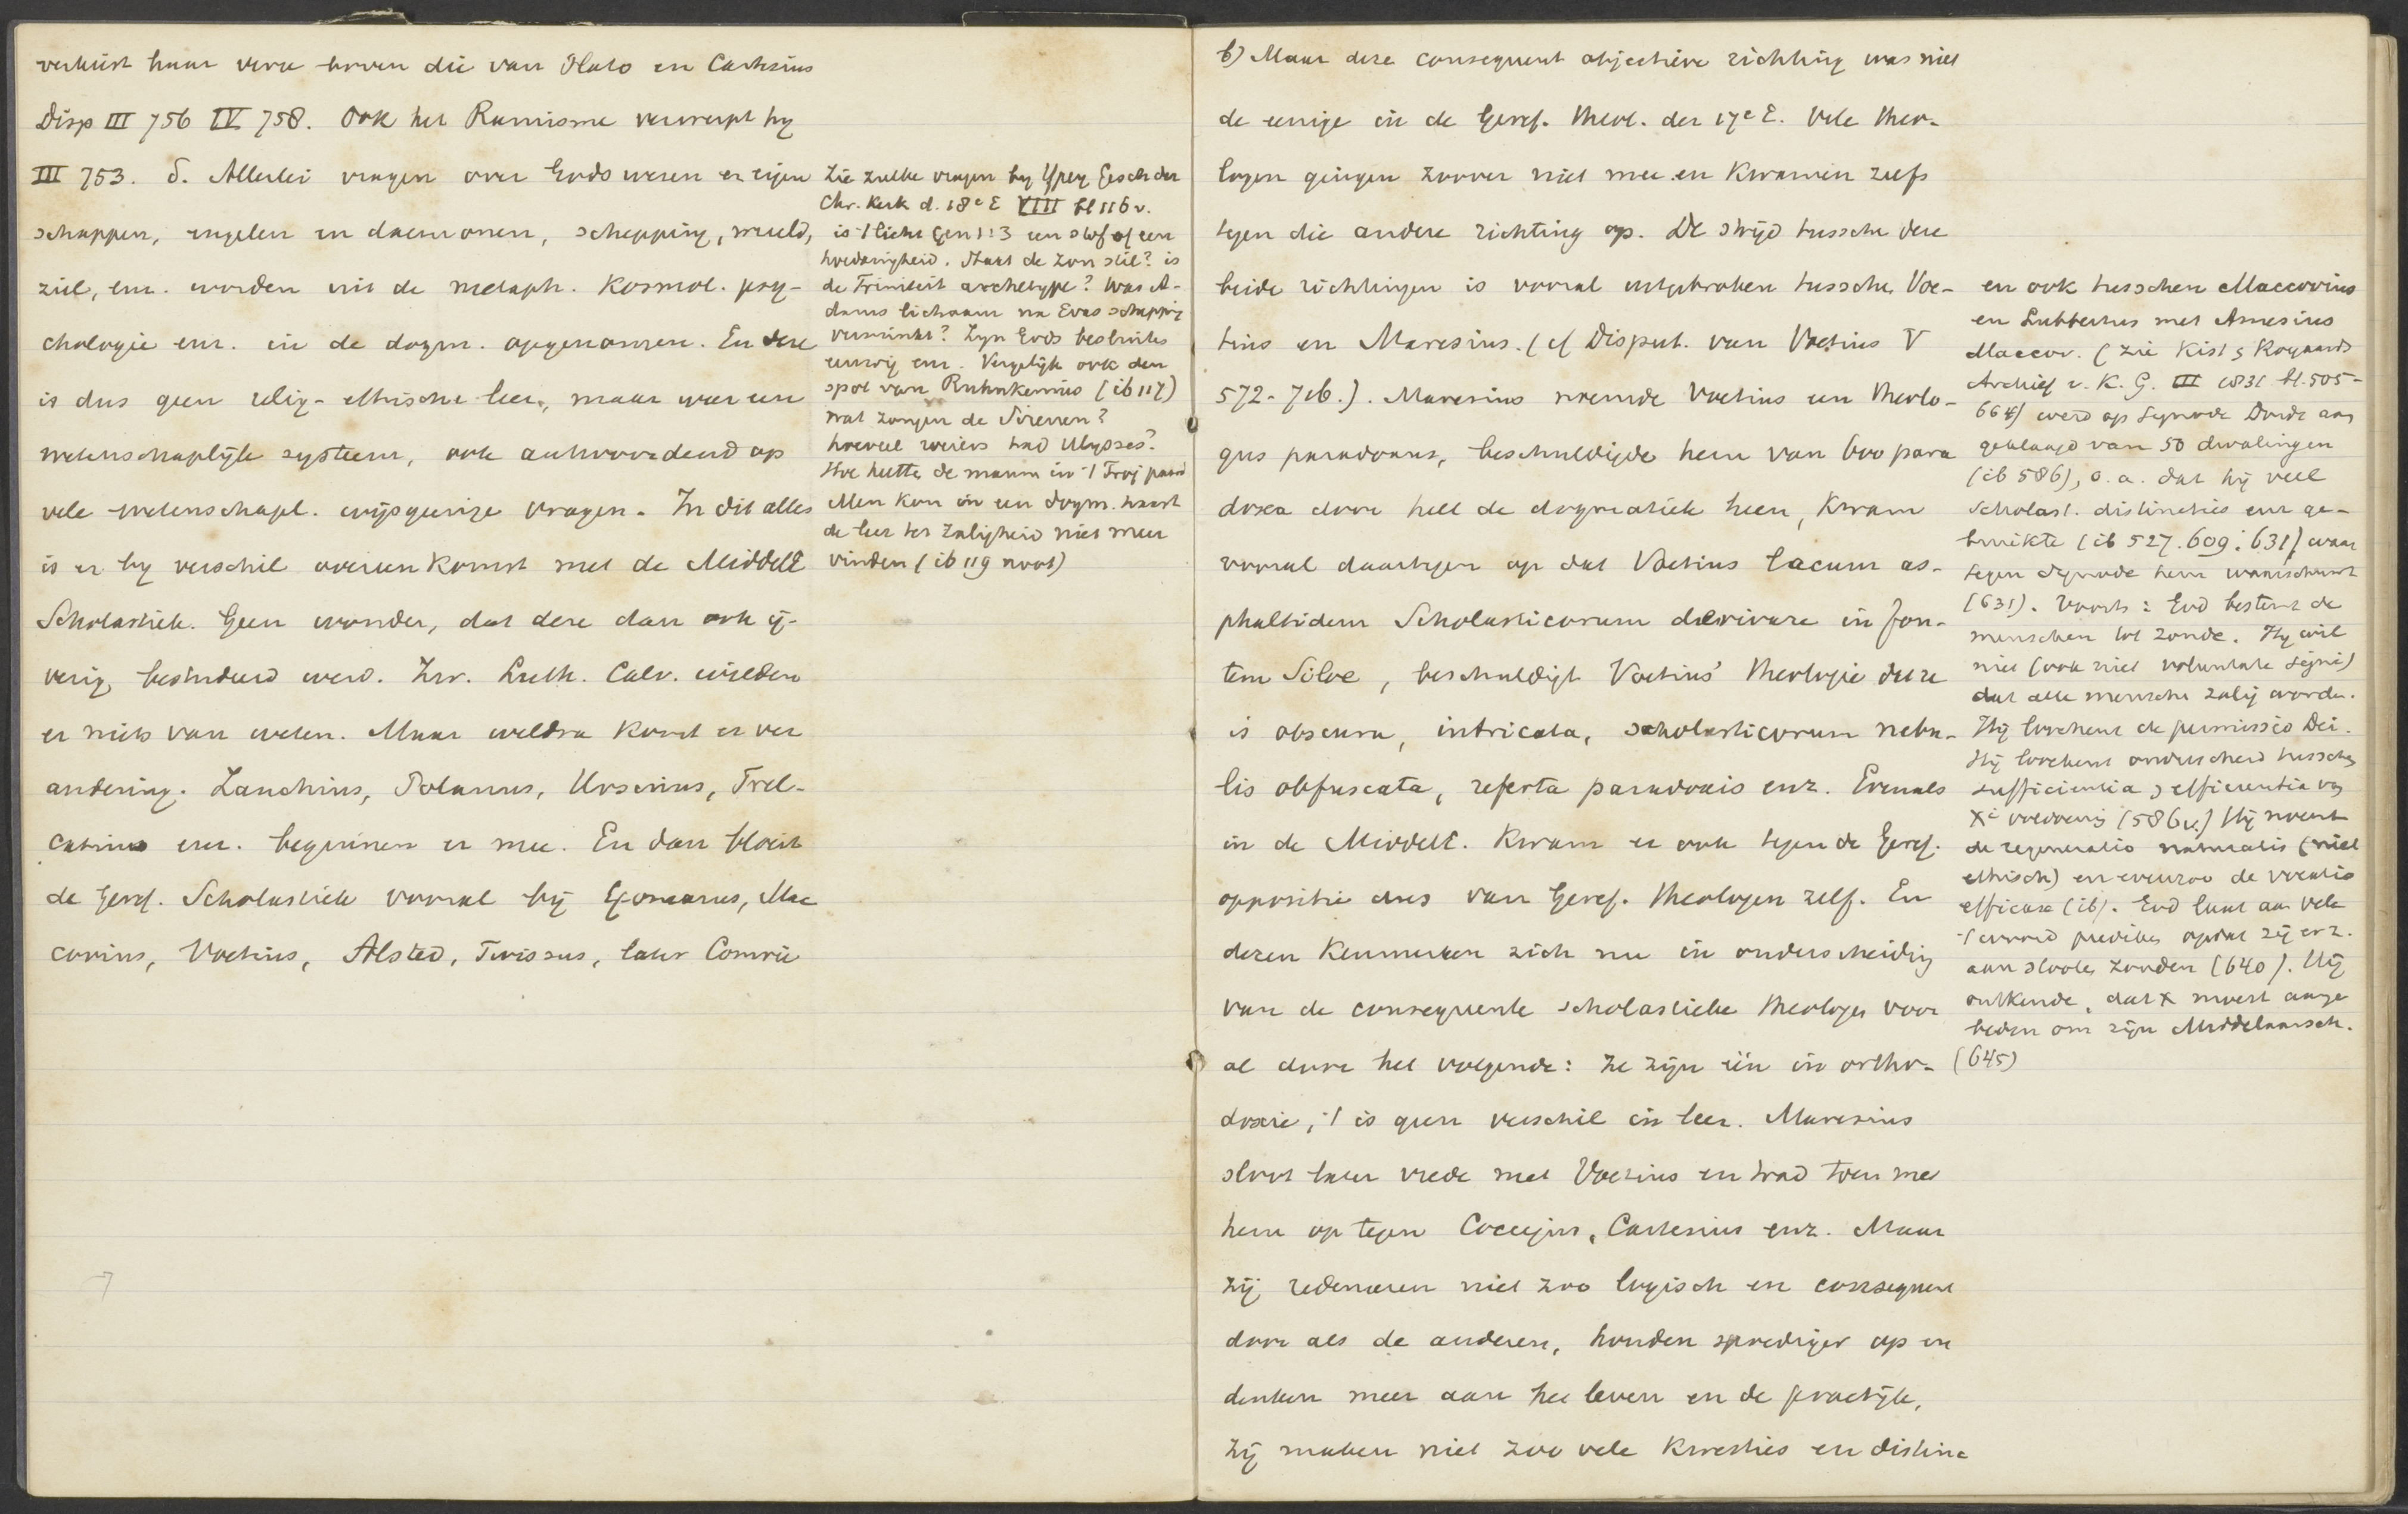 verkiest haar verre boven die van Plato en Cartesius
Disp III 756 IV 758. Ook het Ramisme verwerpt hy
III 753. δ. Allerlei vragen over Gods wezen en eigen
schappen, engelen en daemonen, schepping, wereld,
ziel, enz. worden uit de metaph. kosmol. psy-
chologie enz. in de dogm. opgenomen. En deze
is dus geen relig-ethische leer, maar weer een
wetenschaplijk systeem, ook antwoordend op
vele wetenschapl. wijsgeerige vragen. In dit alles
is er by verschil overeenkomst met de Middele
Scholastiek. Geen wonder, dat deze dan ook ij-
verig bestudeerd werd. Zw. Luth. Calv. wilden
er niets van weten. Maar weldra komt er ver
andering. Zanchius, Polanus, Ursinus, Trel-
catius enz. beginnen er mee. En dan bloeit
de Geref. Scholastiek vooral bij Gomarus, Mac
covius, Voetius, Alsted, Twissus, later Comrie
Zie zulke vragen by Ypey Gesch der
Chr. Kerk d. 18e E VIII bl 116 v.
is 't licht Gen 1:3 een stof of een
hoedanigheid. Staat de zon stil? is
de Triniteit archetype? Was A-
dams lichaam na Evas schepping
verminkt? Zyn Gods besluiten
eeuwig enz. Vergelijk ook den
spot van Ruhnkenius (ib 117)
wat zongen de Sirenen?
hoeveel roeiers had Ulysses?
Hoe heette de man in 't Troj paard
Men kon in een dogm. haast
de leer ter zaligheid niet meer
vinden (ib 119 noot)
b) Maar deze consequent objectieve richting was niet
de eenige in de Geref. Theol. der 17e E. Vele theo-
logen gingen zoover niet mee en kwamen zelfs
tegen die andere richting op. De strijd tusschen deze
beide richtingen is vooral uitgebroken tusschen Voe-
tius en Maresius. (cf Disput. van Voetius V
572-716.). Maresius noemde Voetius een theolo-
gus paradoxus, beschuldigde hem van 600 para
doxa door heel de dogmatiek heen, kwam
vooral daartegen op dat Voetius lacum as-
phaltidem Scholasticorum derivare in fon-
tem Siloe, beschuldigt Voetius' theologie deze
is obscura, intricata, scholasticorum nebu-
lis obfuscata, referta paradoxis enz. Evenals
in de Middele. kwam er ook tegen de Geref.
oppositie dus van Geref. theologen zelf. En
dezen kenmerken zich nu in onderscheiding
van de consequente scholastieke theologen voor
al door het volgende: ze zijn één in ortho-
doxie, 't is geen verschil in leer. Maresius
sloot later vrede met Voetius en trad toen met
hem op tegen Coccejus, Cartesius enz. Maar
zij redeneeren niet zoo logisch en consequent
door als de anderen, houden spoediger op en
denken meer aan het leven en de practijk,
zij maken niet zoo vele kwesties en distinc
en ook tusschen Maccovius
en Lubbertus met Amesius
Maccov. (zie Kist & Royaards
Archief v. K. G. III 1831 bl. 505-
664) werd op Synode Dordr aan
geklaagd van 50 dwalingen
(ib 586), o.a. dat hij veel
Scholast. distincties enz ge-
bruikte (ib 527. 609. 631) waar
tegen Synode hem waarschuwt
(631). Voorts: God bestemt de
menschen tot zonde. Hy wil
niet (ook niet voluntate signi)
dat alle menschen zalig worden.
Hij loochent de permissio Dei.
Hij loochent onderscheid tusschen
sufficientia & efficientia van
Xi voldoening (586 v.) Hij noemt
de regeneratio naturalis (niet
ethisch) en evenzoo de vocatio
efficax (ib). God laat aan vele
't woord prediken opdat zij erz.
aan stooten zouden (640). Hij
ontkende, dat X moest aange
beden om zijn Middelaarsch.
(645)